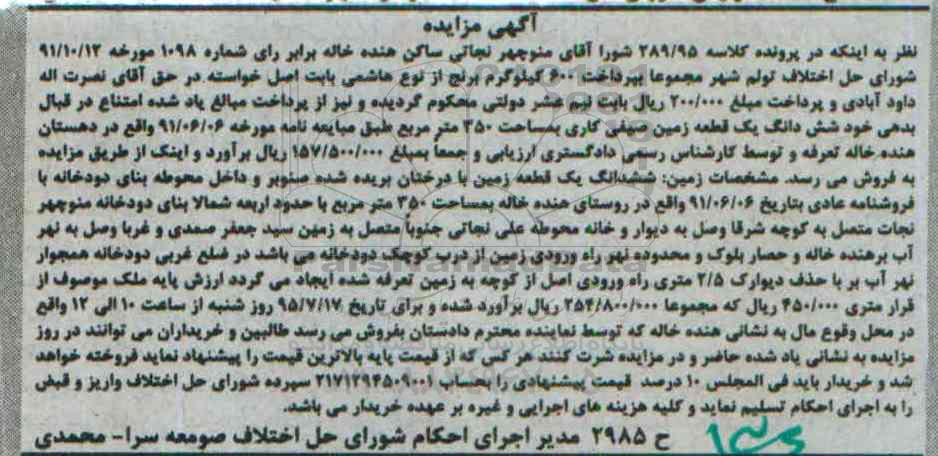 آگهی مزایده
نظر به اینکه در پرونده کلاسه ۲۸۹/۹۵ شورا آقای منوچهر نجاتی ساکن هنده خاله برابر رای شماره ۱۰۹۸ مورخه ۹۱/۱۰/۱۲
شورای حل اختلاف تولم شهر مجموعا بپرداخت ۶۰۰ کیلوگرم برنج از نوع هاشمی بابت اصل خواسته در حق آقای نصرت اله
داود آبادی و پرداخت مبلغ ۲۰۰/۰۰۰ ریال بابت نیم عشر دولتی محکوم گردیده و نیز از پرداخت مبالغ یاد شده امتناع در قبال
بدهی خود شش دانگ یک قطعه زمین صیفی کاری بمساحت ۳۵۰ متر مربع طبق مبایعه نامه مورخه ۹۱/۰۶/۰۶ واقع در دهستان
هنده خاله تعرفه و توسط کارشناس رسمی دادگستری ارزیابی و جمعا بمبلغ ۱۵۷/۵۰۰/۰۰۰ ریال برآورد و اینک از طریق مزایده
به فروش می رسد. مشخصات زمین: ششدانگ یک قطعه زمین با درختان بریده شده صنوبر و داخل محوطه بنای دودخانه با
فروشنامه عادی بتاریخ ۹۱/۰۶/۰۶ واقع در روستای هنده خاله بمساحت ۳۵۰ متر مربع با حدود اربعه شمالا بنای دودخانه منوچهر
نجات متصل به کوچه شرقا وصل به دیوار و خانه محوطه علی نجاتی جنوباً متصل به زمین سید جعفر صمدی و غربا وصل به نهر
آب برهنده خاله و حصار بلوک و محدوده نهر راه ورودی زمین از درب کوچک دودخانه می باشد در ضلع غربی دودخانه همجوار
نهر آب بر با حذف دیوارک ۲/۵ متری راه ورودی اصل از کوچه به زمین تعرفه شده ایجاد می گردد ارزش پایه ملک موصوف از
قرار متری ۴۵۰/۰۰۰ ریال که مجموعا ۲۵۴/۸۰۰/۰۰۰ ریال برآورد شده و برای تاریخ ۹۵/۷/۱۷ روز شنبه از ساعت ۱۰ الی ۱۲ واقع
در محل وقوع مال به نشانی هنده خاله که توسط نماینده محترم دادستان بفروش می رسد طالبین و خریداران می توانند در روز
مزایده به نشانی یاد شده حاضر و در مزایده شرت کنند هر کس که از قیمت پایه بالاترین قیمت را پیشنهاد نماید فروخته خواهد
شد و خریدار باید فی المجلس ۱۰ درصد قیمت پیشنهادی را بحساب ۲۱۷۱۲۹۴۵۰۹۰۰۱ سپرده شورای حل اختلاف واریز و قبض
را به اجرای احکام تسلیم نماید و کلیه هزینه های اجرایی و غیره بر عهده خریدار می باشد.
ح ۲۹۸۵ مدیر اجرای احکام شورای حل اختلاف صومعه سرا- محمدی